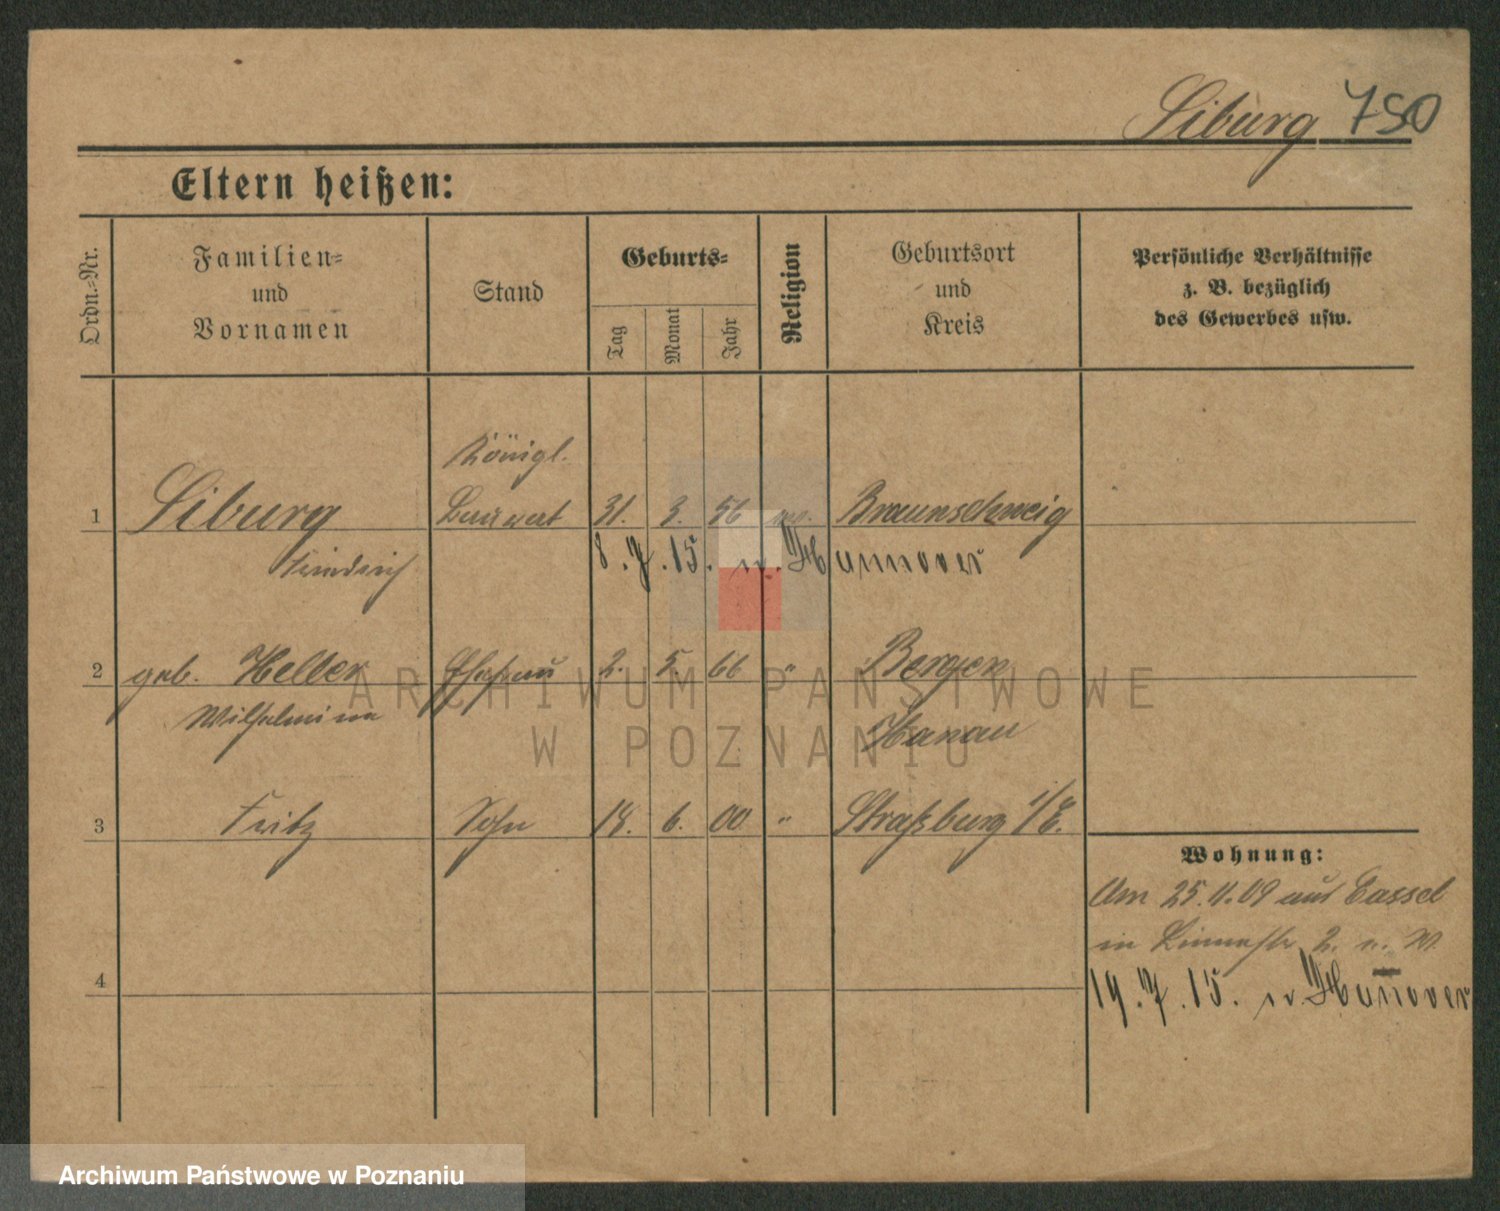 Siburg 750
Eltern heißen:
Ordn.-Nr.
Familien-
und
Vornamen
Stand
Geburts-
Tag
Monat
Jahr
Religion
Geburtsort
und
Kreis
Persönliche Verhältnisse
z. B. bezüglich
des Gewerbes usw.
Königl.
1 Siburg Baurat 31. 3. 56 Braunschweig
Friedrich 8.7.15. n. Hannover
2 geb. Heller Ehefrau 2. 5. 66 " Bergen
Wilhelmine Hanau
3 Fritz Sohn 18. 6. 00 " Straßburg i/E.
Wohnung:
Am 25.11.09 aus Cassel
in 2. n. W
19.7.15. n. Hannover
4
ARCHIWUM PAŃSTWOWE
W POZNANIU
Archiwum Państwowe w Poznaniu